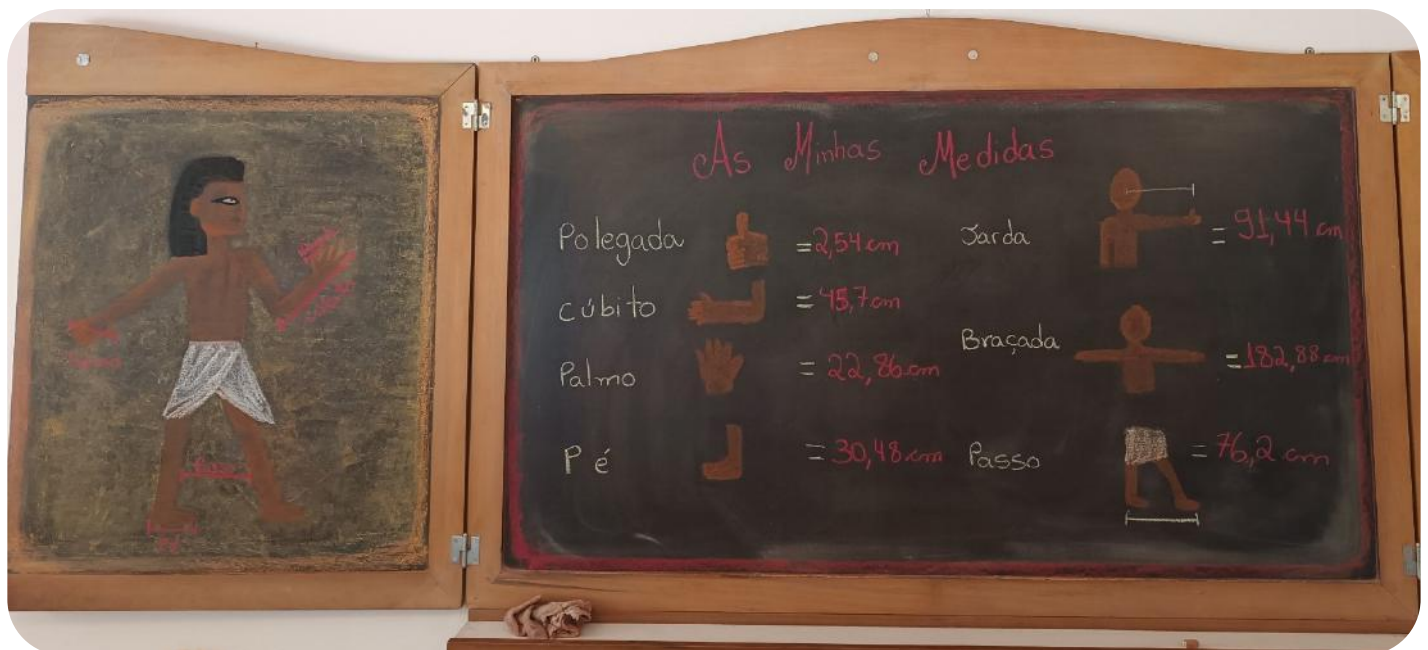 As Minhas Medidas
Polegada = 2,54 cm
cúbito = 45,7 cm
Palmo = 22,86 cm
Pé = 30,48 cm
Jarda = 91,44 cm
Braçada = 182,88 cm
Passo = 76,2 cm
Passo
Pé